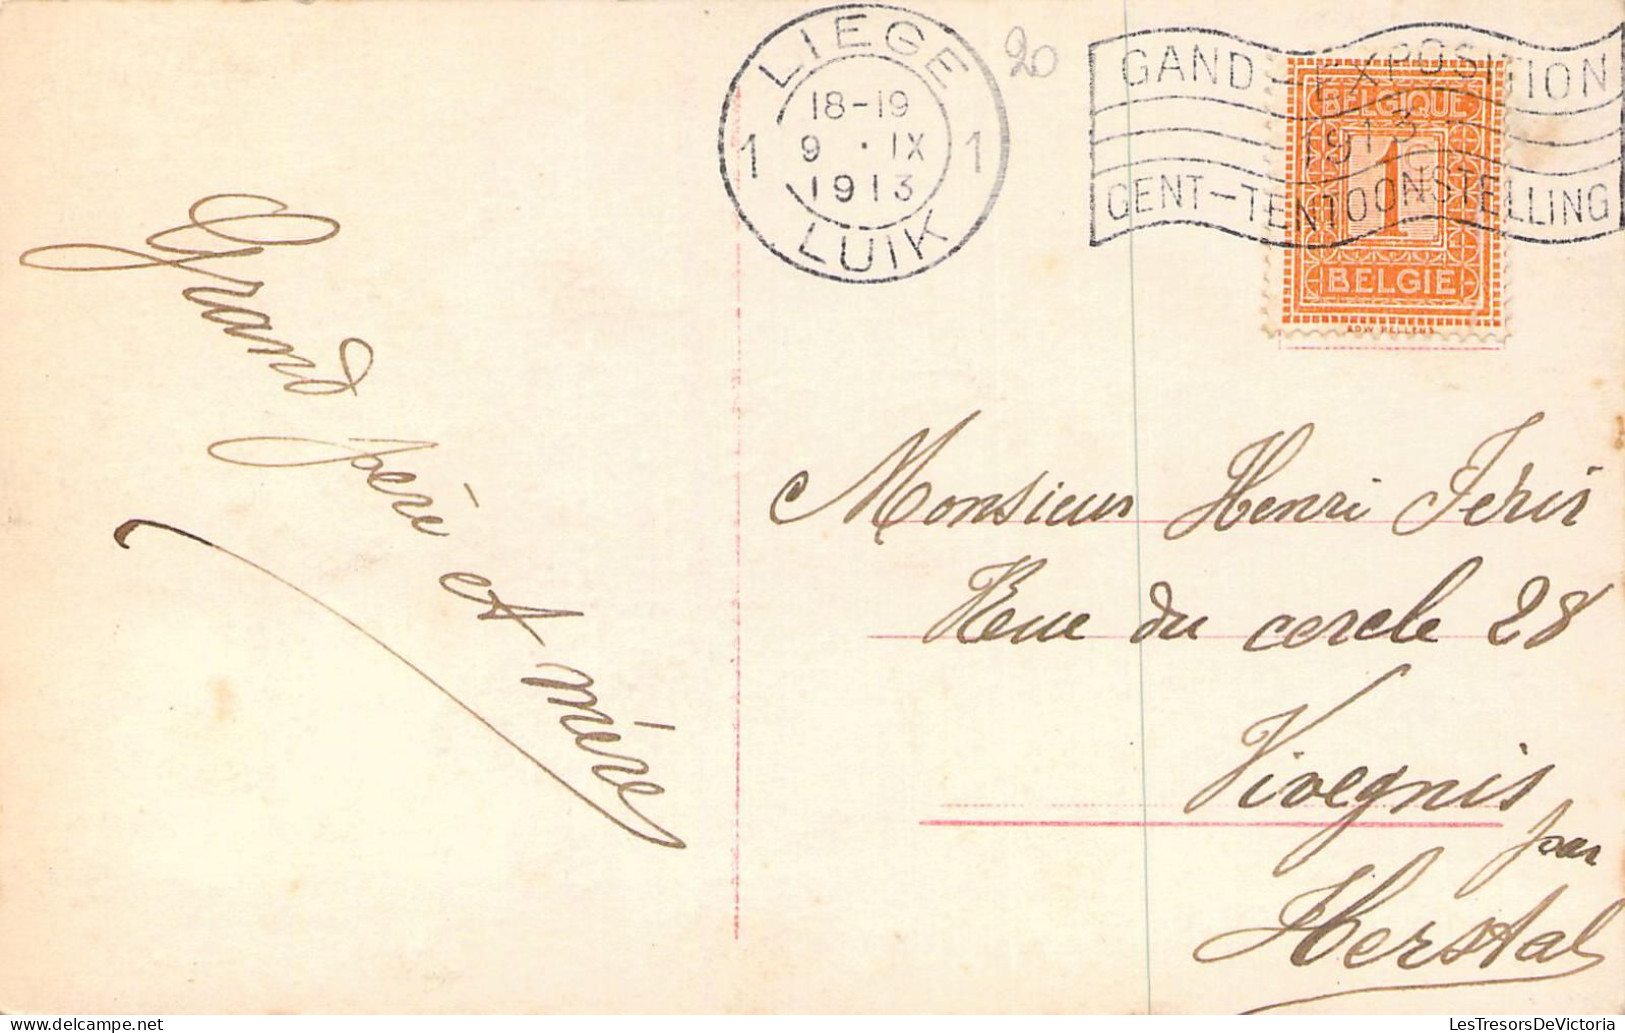 LIEGE
18-19
1 9 · IX 1
1913
LUIK
20
GAND-EXPOSITION
1913
GENT-TENTOONSTELLING
BELGIQUE
1
BELGIE
Grand père et mère
Monsieur Henri Féris
Rue du cercle 28
Vivegnis
par
Herstal
LesTresorsDeVictoria